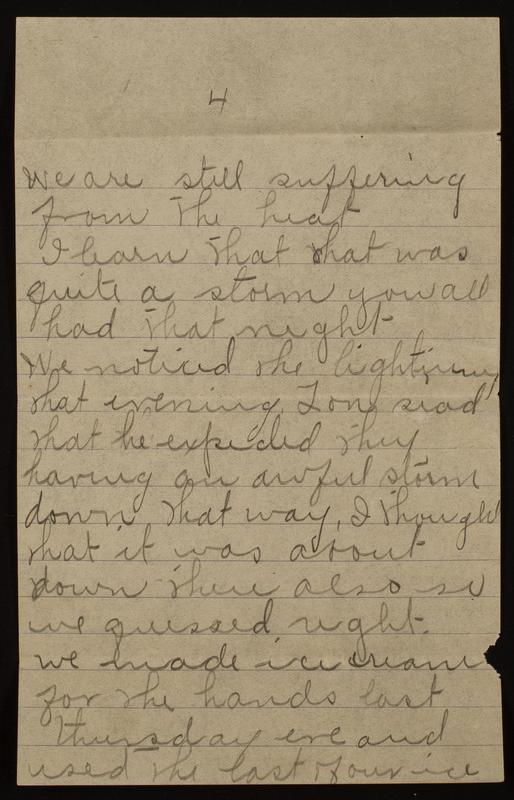 4
We are still suffering
from the heat
I learn that that was
quite a storm you all
had that night
We noticed the lightning
that evening, Tom said
that he expected they
having an awful storm
down that way, I thought
that it was about
down there also so
we guessed right.
We made ice cream
for the hands last
thursday eve and
used the last of our ice